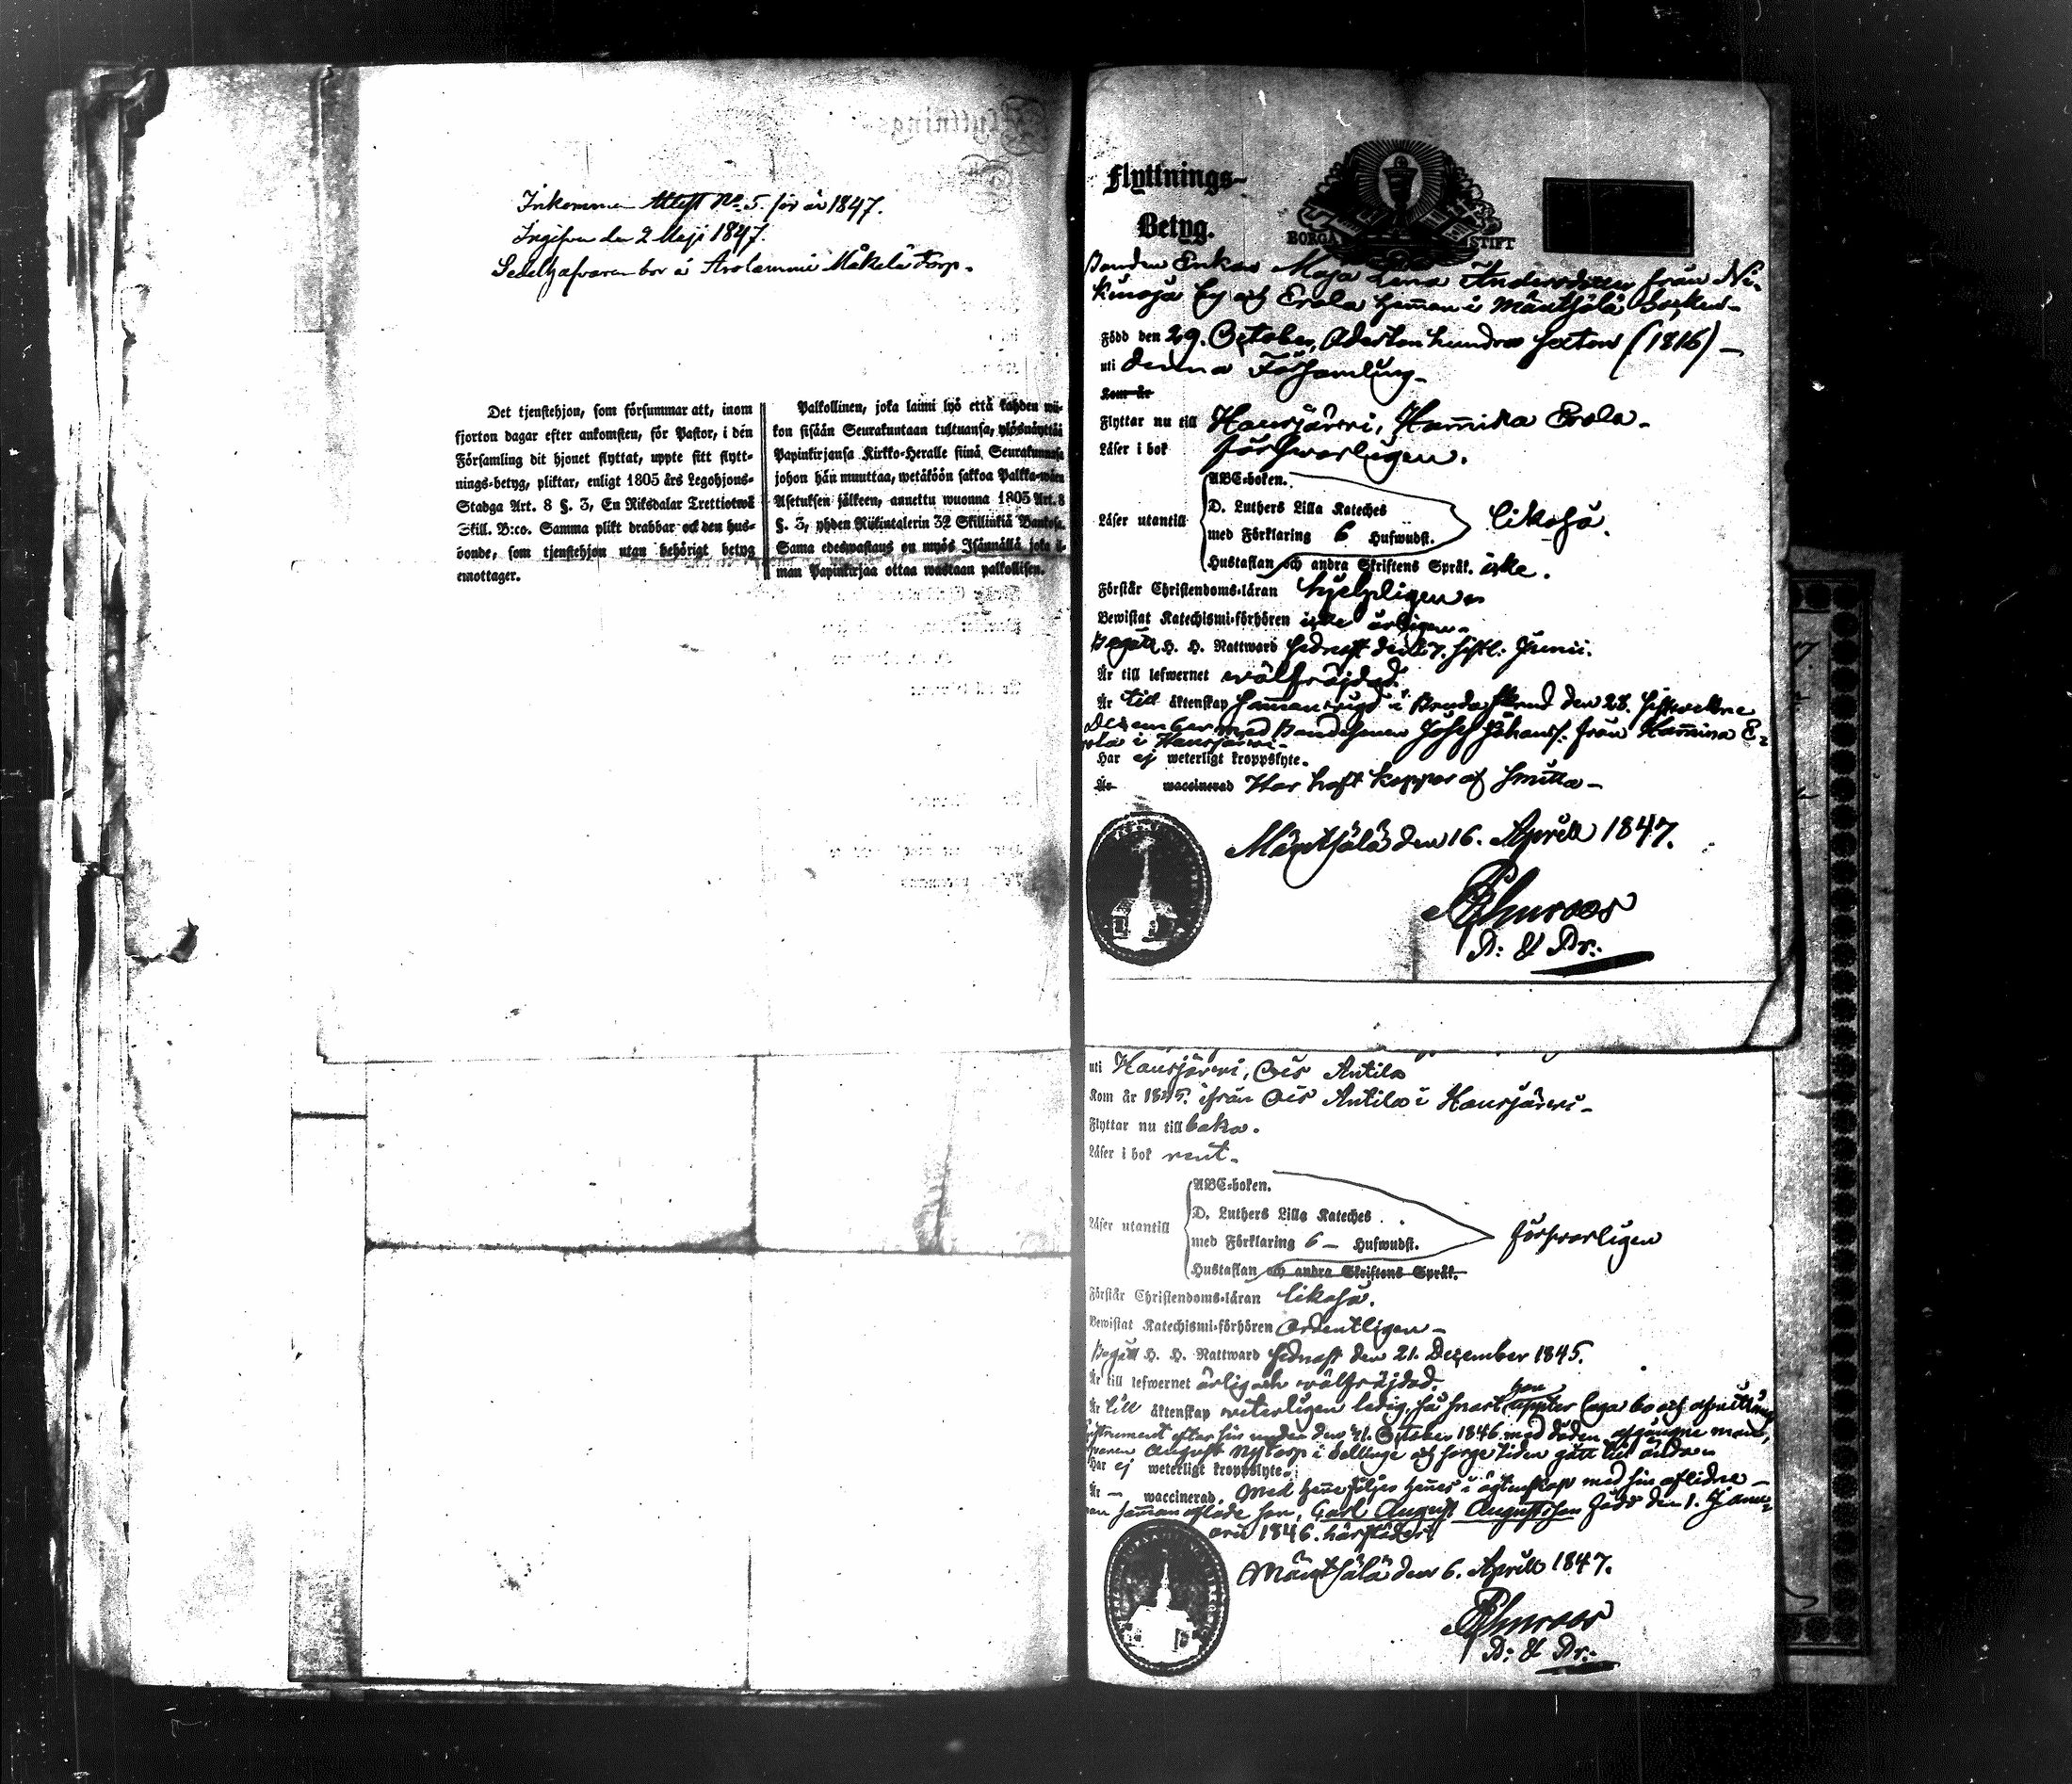 Inkommen Attest No 5. för år 1847.
Ingifven den 2 Maji 1847.
Sedelhafvaren bor å Arolammi Mäkelä Torp.
Det tjenstehjon, som försummar att, inom
fjorton dagar efter ankomsten, för Pastor, i den
Församling dit hjonet flyttat, uppte sitt flytt-
nings-betyg, pliktar, enligt 1805 års Legohjons-
Stadga Art. 8 §. 3, En Riksdalar Trettiotwå
Skill. B:co. Samma plikt drabbar ock den hus-
bonde, som tjenstehjon utan behörigt betyg
emottager.
Palkollinen, joka laimi lyö että kahden wii-
kon sisään Seurakuntaan tultuansa, ylösnäyttää
Papinkirjansa Kirkko-Heralle siinä Seurakunnasa
johon hän muuttaa, wetäköön sakkoa Palkka-wäen
Asetuksen jälkeen, annettu wuonna 1805 Art. 8
§. 3, yhden Riikintalerin 32 Skillinkiä Bankosa.
Sama edeswastaus on myös Isännällä joka il-
man Papinkirjaa ottaa wastaan palkollisen.
Flyttnings-
Betyg.
BORGÅ STIFT
Bonden Enkan Maja Lena Andersdotter från Ni-
kinoja by och Erola heman i Mäntsälä Socken-
Född den 29. October, Aderton hundra sexton (1816) –
uti denna Församling-
Kom år
Flyttar nu till Hausjärvi, Hamina Erola.
Läser i bok försvarligen.
Läser utantill
ABC-boken.
D. Luthers Lilla Kateches
med Förklaring 6 Hufwudst.
likaså.
Hustaflan och andra Skriftens Språk. icke.
Förstår Christendoms-läran hjelpligen
Bewistat Katechismi-förhören icke årligen-
Begått H. H. Nattward sednast den 7. sistl: Junii.
Är till lefwernet wälfräjdad.
Är till äktenskap sammanvigd i Brudastånd den 28. sistvekne
December med Bondesonen Josef Johansf: från Hamina E-
rola i Hausjärvi-
Har ej weterligt kroppslyte.
Är waccinerad Har haft koppor af smitta –
Mäntsälä den 16. Aprill 1847.
D: & Pr:
uti Hausjärvi, Ois Antila
Kom år 1845. ifrån Ois Antila i Hausjärvi-
Flyttar nu till baka.
Läser i bok rent-
Läser utantill
ABC-boken.
D. Luthers Lilla Kateches
med Förklaring 6 – Hufwudst.
försvarligen
Hustaflan och andra Skriftens Språk.
Förstår Christendoms-läran likaså.
Bewistat Katechismi-förhören Ordentligen-
Begått H. H. Nattward sednast den 21. December 1845.
Är till lefwernet ärlig och wälfräjdad.
Är till äktenskap veterligen ledig, så snart hon uppter laga bo och afvittrings
instrument efter sin under den 21. October 1846 med döden afgångne man,
August Nytorp i Sellinge och sorge tiden gått till ända.
Har ej weterligt kroppslyte.
Är – waccinerad. Med henne följer hennes i ägtenskap med sin aflidne
man samman aflade son, Carl August Augustsson född den 1. Janu-
arii 1846. härstädes.
Mäntsälä den 6. Aprill 1847.
D: & Pr: